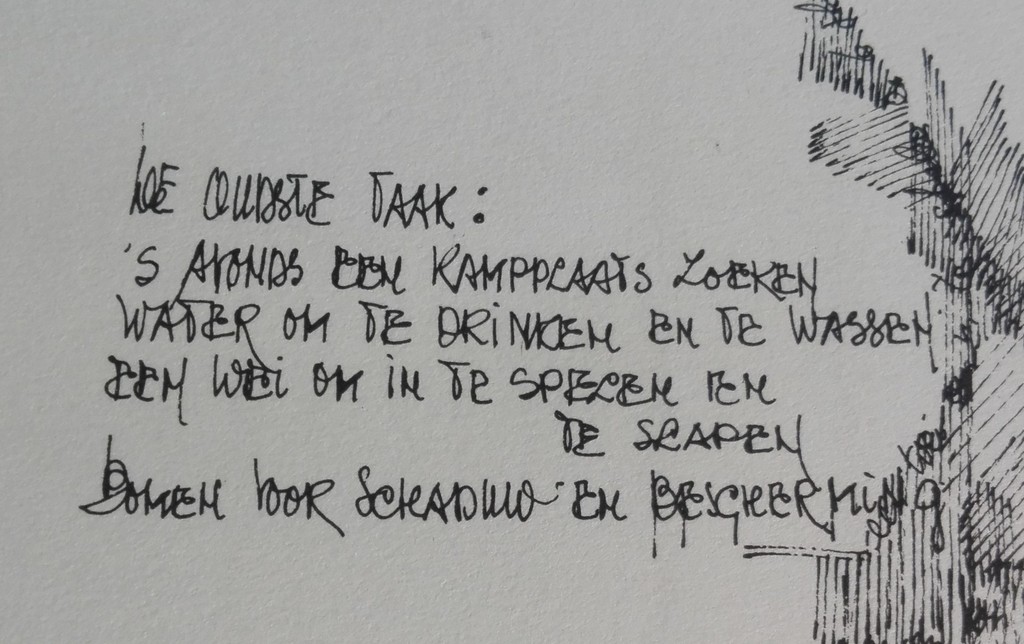 DE OUDSTE TAAK:
'S AVONDS EEN KAMPPLAATS ZOEKEN
WATER OM TE DRINKEN EN TE WASSEN
EEN WEI OM IN TE SPELEN EN
TE SLAPEN
BOMEN VOOR SCHADUW EN BESCHERMING